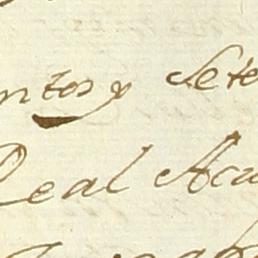 ntos y Sete
Real Acu